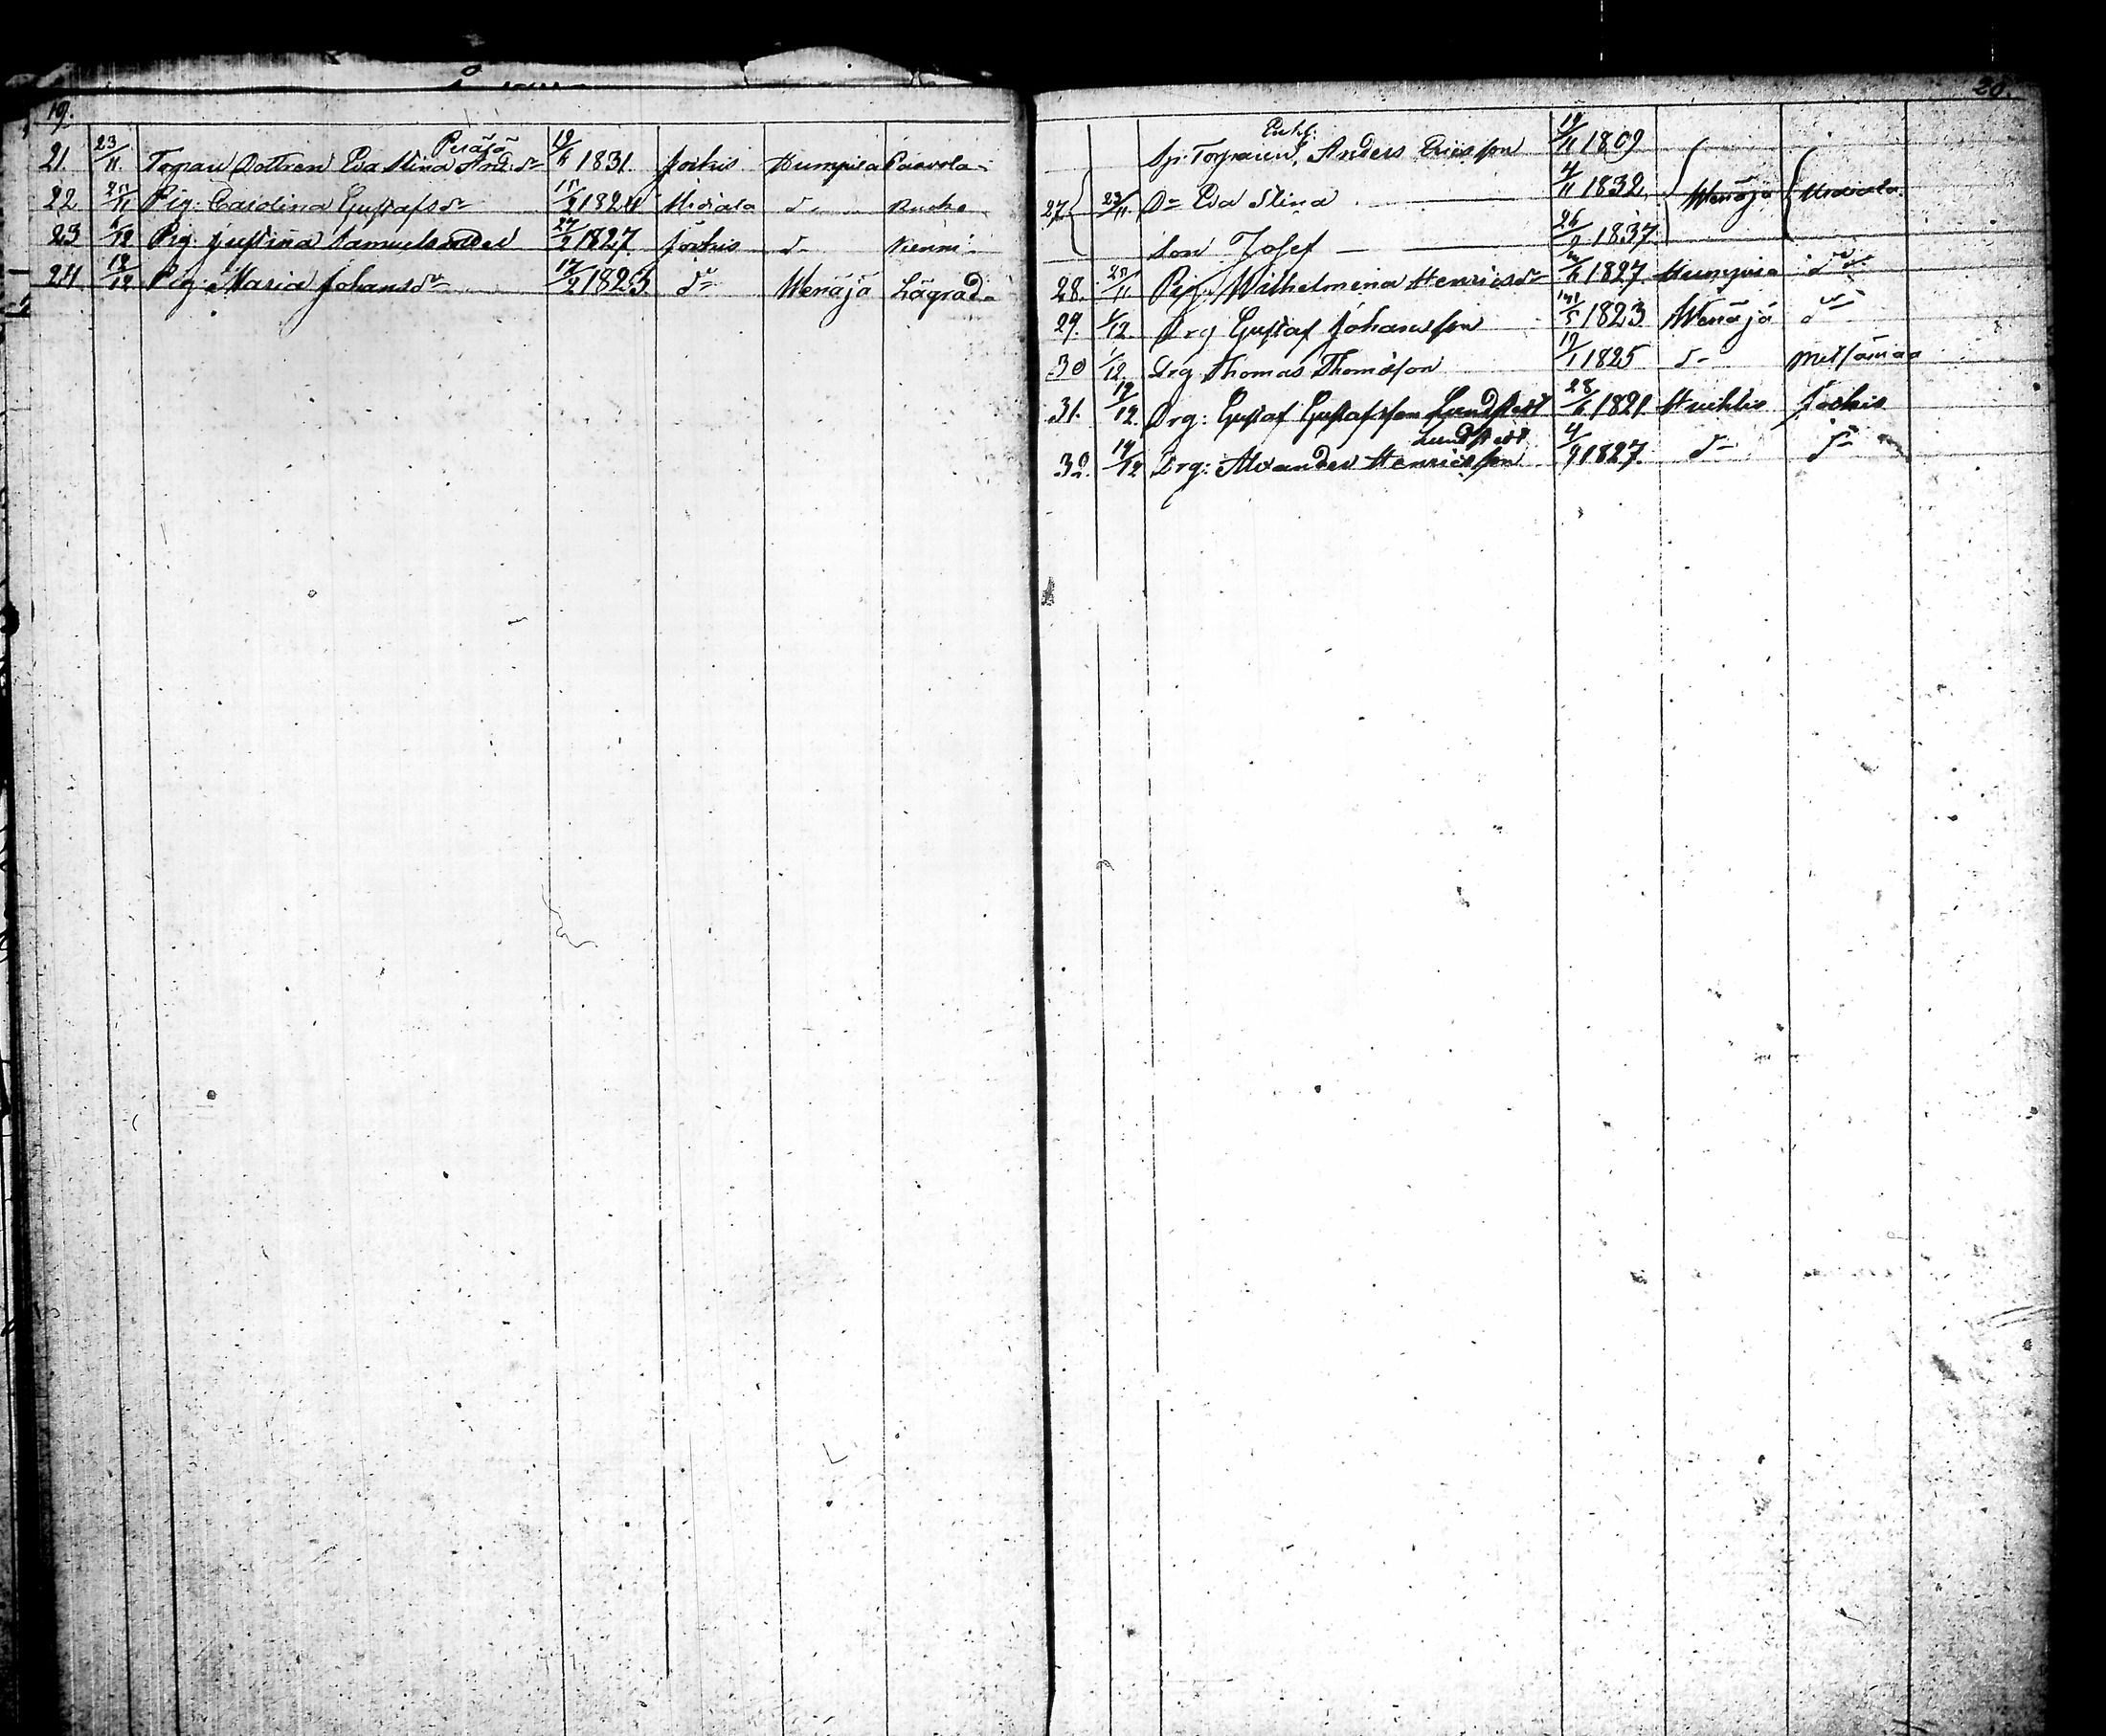 19.
21. 23/11. Torpare Dottren Eva Stina And:dr 1831. Jockis Humpila Paavola
22 Pig: Carolina Gustafsdr 1824 Urdiala d:o
23 1/12 Pig. Justina Samuelsdotter 27/2 1827. Jockis d:o Kiermi
24 12/12 Pig: Maria Johansdr 17/2 1823. d:o Wenäjä
20.
Sp: Torparen Enkl: Anders Ericsson 19/11 1809
27. 23/11 Dr Eva Stina 4/11 1832 Wenäjä Urdiala
Son Josef 26/2 1837
28. Pig: Wilhelmina Henricsdr 1827 Humpila d:o
29. 1/12. Drg Gustaf Johansson 1823 Wenäjä d:o
30 1/12. Drg Thomas Thomasson 12/1 1825 d:o
31. 12/12. Drg: Gustaf Gustafsson Lundstedt 28/6 1821. Jockis
32. 14/12 Drg: Alexander Henricsson Lundstedt 4/9 1827. d:o d:o